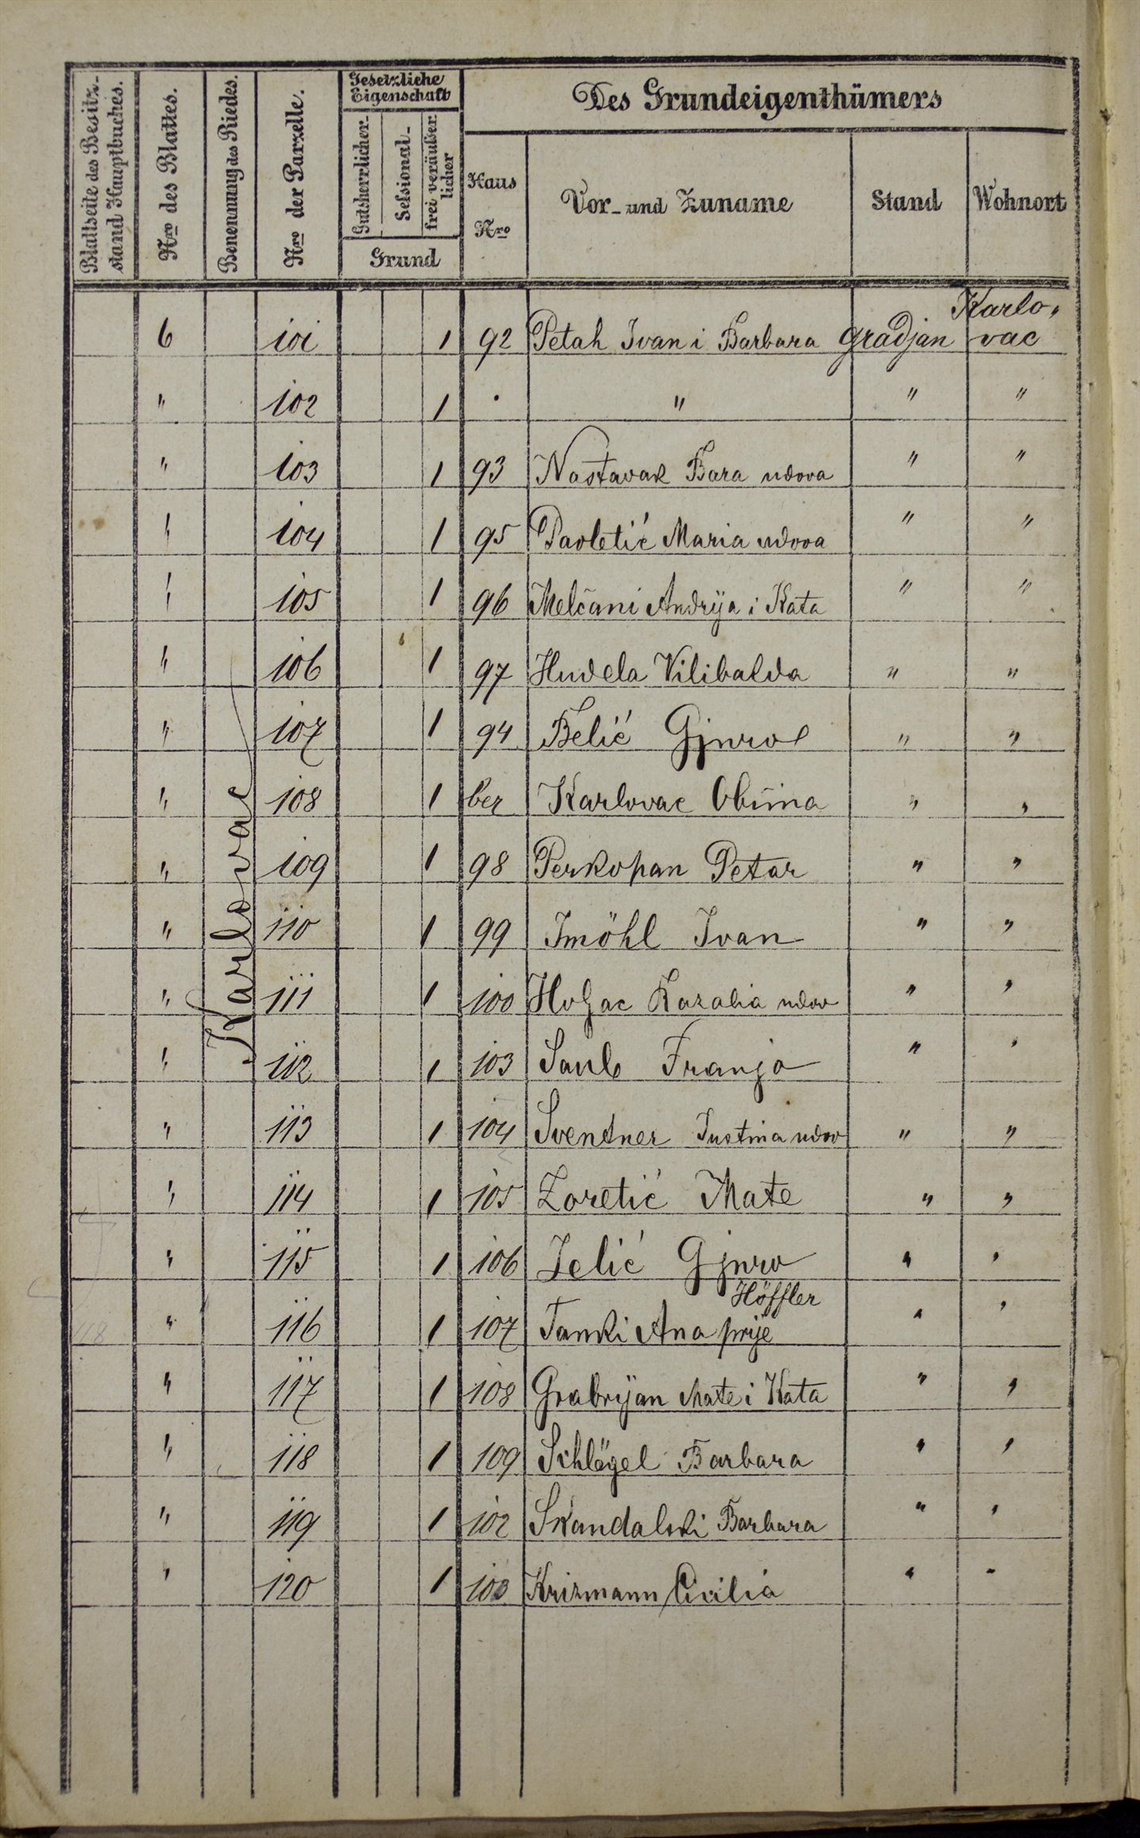 Blattseite des Besitz-
stand Hauptbuches.
Nro des Blattes.
Benennung des Riedes.
Nro der Parzelle.
Gesetzliche
Eigenschaft
Gutsherrlicher
Sessional-
frei veräußer
licher
Grund
Des Grundeigenthümers
Haus
Nro
Vor- und Zuname
Stand
Wohnort
Karlovac
6 101 1 92 Petah Ivan i Barbara gradjan Karlo-
vac
" 102 1 " " " "
" 103 1 93 Nastavak Bara udova " "
" 104 1 95 Pavletić Maria udova " "
" 105 1 96 Melčani Andrija i Kata " "
" 106 1 97 Hudela Vilibalda " "
" 107 1 94 Belić Gjuro " "
" 108 1 bez Karlovac Obćina " "
" 109 1 98 Perkopan Petar " "
" 110 1 99 Imöhl Ivan " "
" 111 1 100 Holjac Rozalia udov " "
" 112 1 103 Franjo " "
" 113 1 104 Sventner Justina udov " "
" 114 1 105 Zoretić Mate " "
" 115 1 106 Jelić Gjuro " "
Höffler
" 116 1 107 Ana prije " "
" 117 1 108 Grabrijan Mate i Kata " "
" 118 1 109 Schlögel Barbara " "
" 119 1 102 Skandalski Barbara " "
" 120 1 Krizmann Cicilia " "